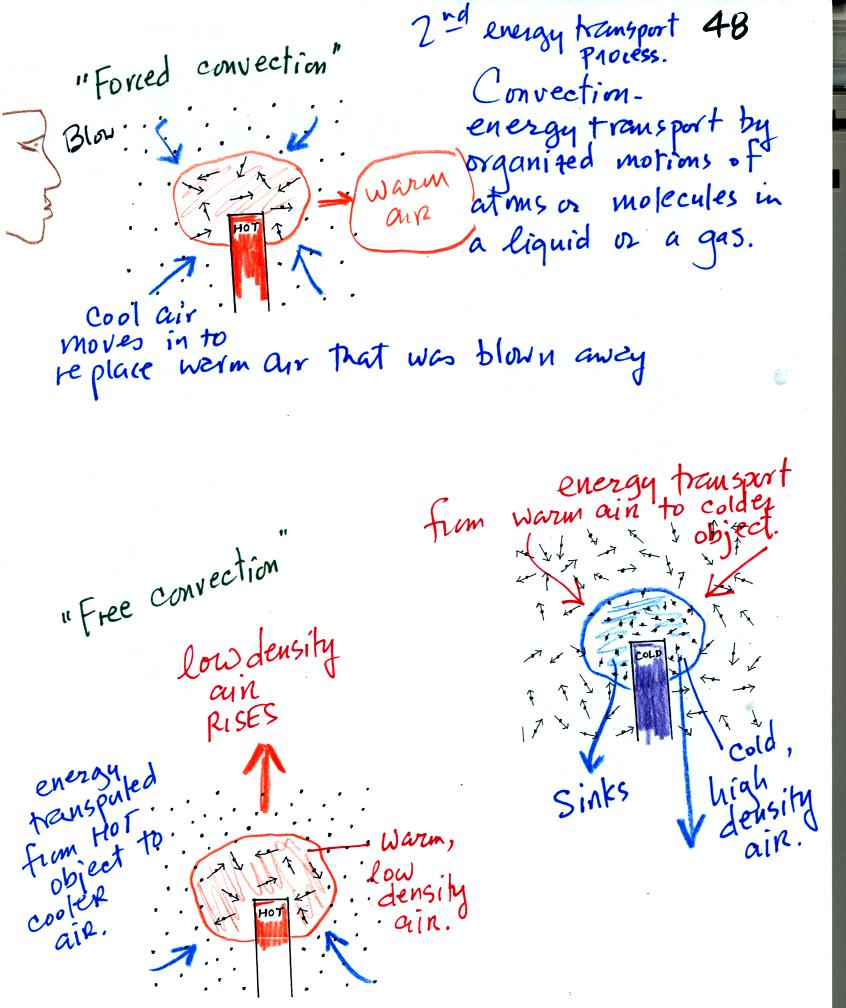 2nd energy transport process.
48
"Forced convection"
Blow
HOT
warm
air
Convection-
energy transport by
organized motions of
atoms or molecules in
a liquid or a gas.
Cool air
moves in to
replace warm air that was blown away
energy transport
from warm air to colder
object.
"Free convection"
COLD
low density
air
RISES
Sinks
Cold,
high
density
air.
energy
transputed
from HOT
object to
cooler
air.
Warm,
low
density
air.
HOT